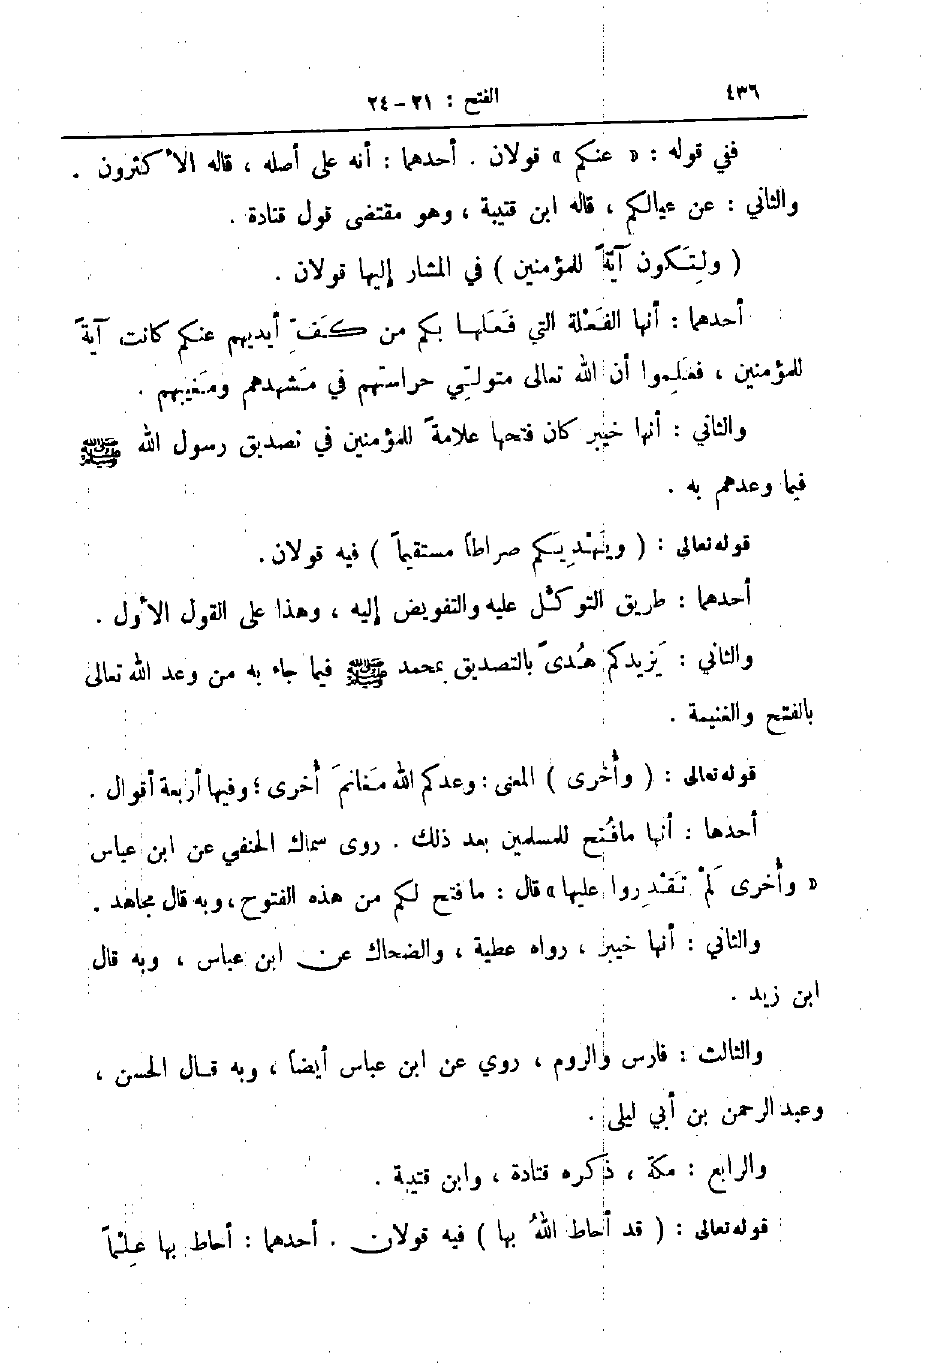 ٤٣٦ الفتح : ٢١-٢٤
ففي قوله : « عنكم » قولان . أحدهما : أنه على أصله ، قاله الأكثرون .
والثاني : عن عيالكم ، قاله ابن قتيبة ، وهو مقتضى قول قتادة .
( ولِتَكون آيةً للمؤمنين ) في المشار إليها قولان .
أحدهما : أنها الفَعْلة التي فَعَلها بكم من كَفِّ أيديهم عنكم كانت آيةً
للمؤمنين ، فعَلِموا أن الله تعالى متولِّي حراستهم في مَشهدهم ومَغيبهم .
والثاني : أنها خيبر كان فتحها علامةً للمؤمنين في تصديق رسول الله ﷺ
فيما وعدهم به .
قوله تعالى : ( ويَهْدِيَكم صراطاً مستقيماً ) فيه قولان .
أحدهما : طريق التوكُّل عليه والتفويض إليه ، وهذا على القول الأول .
والثاني : يَزيدكم هُدىً بالتصديق بمحمد ﷺ فيما جاء به من وعد الله تعالى
بالفتح والغنيمة .
قوله تعالى : ( وأُخرى ) المعنى : وعدكم الله مَغانمَ أُخرى ؛ وفيها أربعة أقوال .
أحدها : أنها مافُتح للمسلمين بعد ذلك . روى سماك الحنفي عن ابن عباس
« وأُخرى لَمْ تَقْدِروا عليها » قال : ما فتح لكم من هذه الفتوح ، وبه قال مجاهد .
والثاني : أنها خيبر ، رواه عطية ، والضحاك عن ابن عباس ، وبه قال
ابن زيد .
والثالث : فارس والروم ، روي عن ابن عباس أيضاً ، وبه قال الحسن ،
وعبد الرحمن بن أبي ليلى .
والرابع : مكة ، ذكره قتادة ، وابن قتيبة .
قوله تعالى : ( قد أحاط اللهُ بها ) فيه قولان . أحدهما : أحاط بها عِلْماً